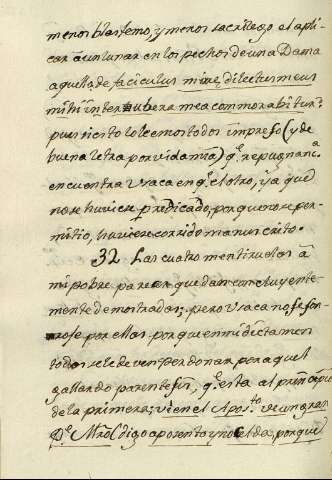 menos blasfemo, y menos sacrilego el apli-
car à un lunar en los pechos de una Dama
aquello de faciculus mirre dilectus meus
mihi inter ubera mea commorabitur:
pues si esto lo leemos todos impreso (y de
buena letra por vida mia) q.e repugnanc.a
encuentra Vsaca en q.e el otro, ya que
no se huviese predicado, porque no se per-
mitio, huviese corrido manuscrito.
32. Las quatro mentiruelas à
mi pobre parecer quedan concluyente-
mente demostradas; pero Vsaca no se son-
rose por ellas, porque en mi dictamen
todo se le deve perdonar por aquel
gallardo parentesis, q.e esta al principio
de la primera; vi en el Apos.to de un gran
P.e Mro (digo aposento, y no Celda, porque